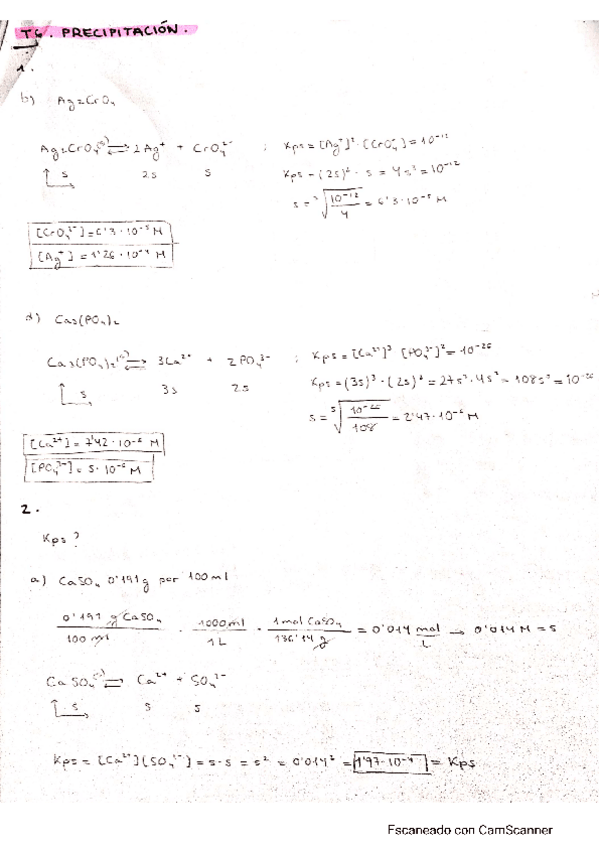 T6. PRECIPITACIÓN.
1.
b) Ag2CrO4
Ag2CrO4(s) ⇌ 2Ag+ + CrO4²⁻ ; Kps = [Ag+]² · [CrO4⁻] = 10⁻¹²
s 2s s Kps = (2s)² · s = 4s³ = 10⁻¹²
s = ³√(10⁻¹²/4) = 6'3 · 10⁻⁵ M
[CrO4²⁻] = 6'3 · 10⁻⁵ M
[Ag+] = 1'26 · 10⁻⁴ M
d) Ca3(PO4)2
Ca3(PO4)2(s) ⇌ 3Ca²⁺ + 2PO4³⁻ ; Kps = [Ca²⁺]³ [PO4³⁻]² = 10⁻²⁶
s 3s 2s Kps = (3s)³ · (2s)² = 27s³ · 4s² = 108s⁵ = 10⁻²⁶
s = ⁵√(10⁻²⁶/108) = 2'47 · 10⁻⁶ M
[Ca²⁺] = 7'42 · 10⁻⁶ M
[PO4³⁻] = 5 · 10⁻⁶ M
2.
Kps?
a) CaSO4 0'191g por 100ml
0'191 g CaSO4 / 100 ml · 1000ml / 1L · 1mol CaSO4 / 136'14 g = 0'014 mol/L → 0'014 M = s
CaSO4(s) ⇌ Ca²⁺ + SO4²⁻
s s s
Kps = [Ca²⁺][SO4²⁻] = s · s = s² = 0'014² = 1'97 · 10⁻⁴ = Kps
Escaneado con CamScanner